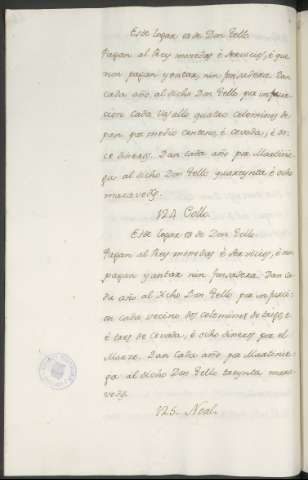 Este logar es de Don Tello
Pagan al Rey moneda é servicios, é que
non pagan yantar nin fonsadera. Dan
cada año al dicho Don Tello por infur-
cion cada vasallo quatro celemines de
pan por medio centeno, é cevada, é on-
ce dineros. Dan cada año por Martinie-
ga al dicho Don Tello quarenta é ocho
maravedís.
124. Collo.
Este logar es de Don Tello
Pagan al Rey moneda é servicios, é non
pagan yantar nin fonsadera. Dan ca-
da año al dicho Don Tello, por infurci-
on cada vecino dos celemines de trigo, é
é tres de cevada, é ocho dineros por el
Marzo. Dan cada año por Martinie-
ga al dicho Don Tello treynta mara-
vedís.
125. Noal.